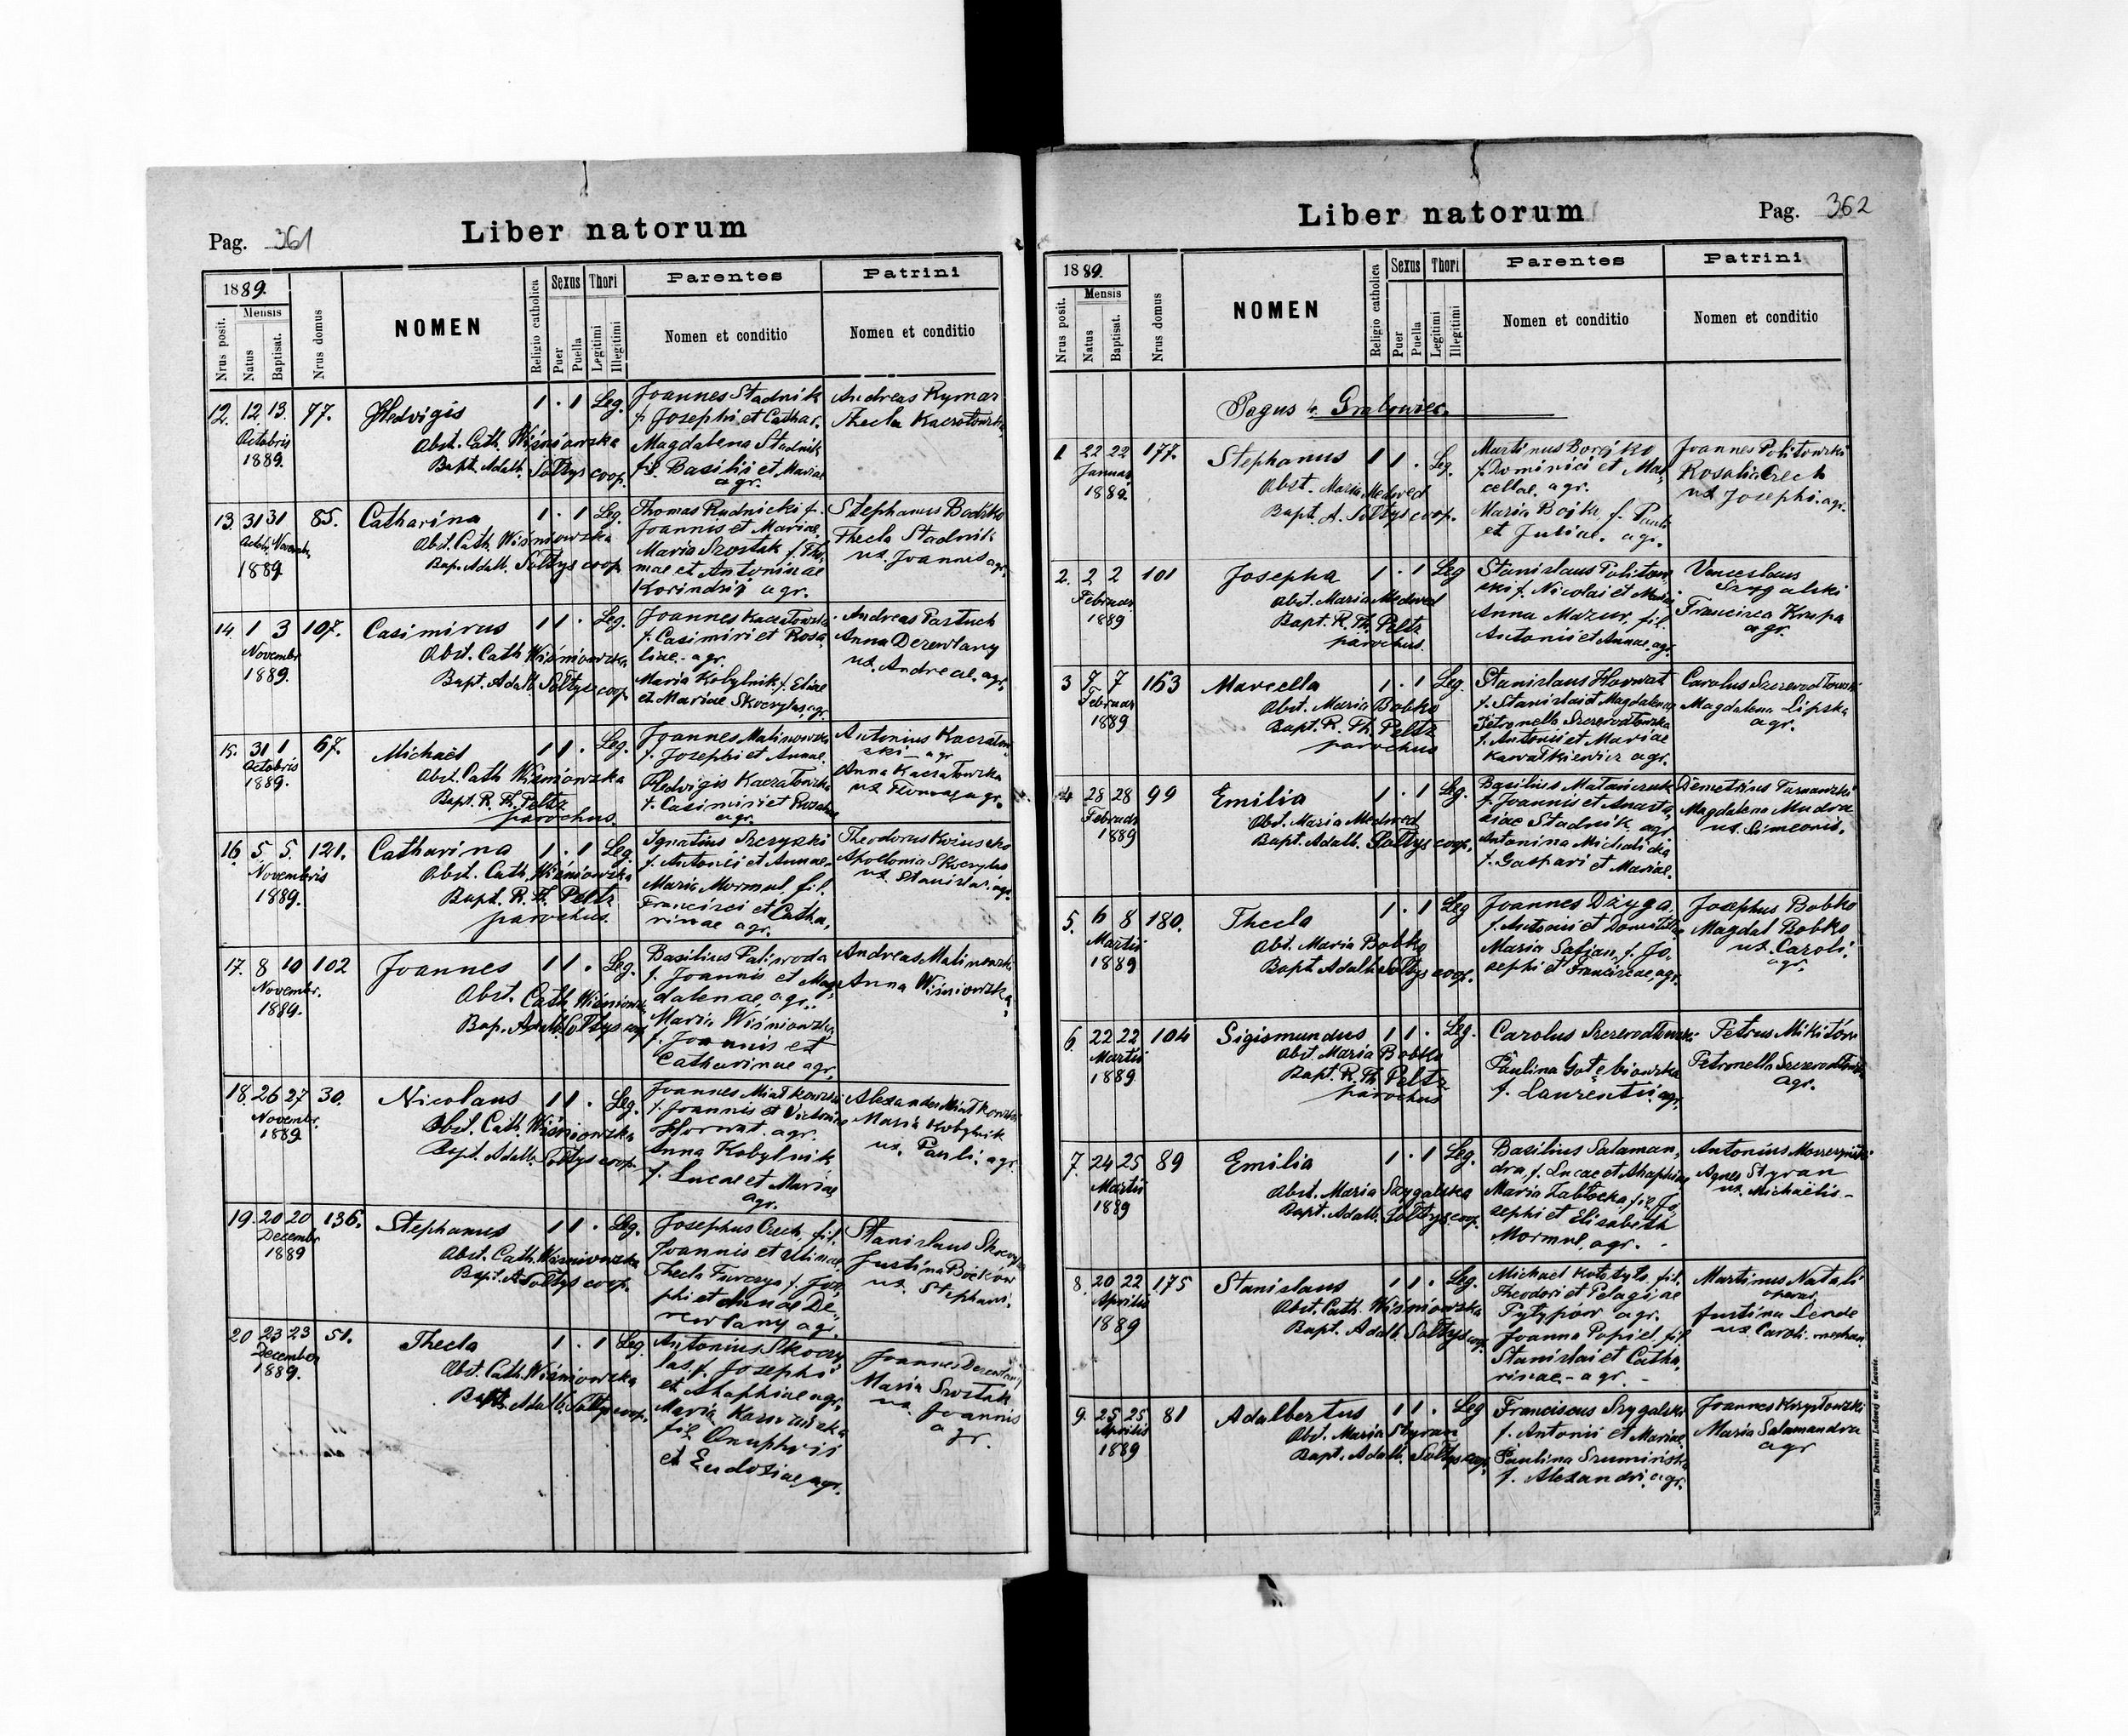 Pag. 361
Liber natorum
1889.
Nrus posit.
Mensis
Natus
Baptisat.
Nrus domus
NOMEN
Religio catholica
Sexus
Puer
Puella
Thori
Legitimi
Illegitimi
Parentes
Nomen et conditio
Patrini
Nomen et conditio
12. 12 13. 77. Hedvigis 1 . 1 Leg.
Octobris
1889.
Obst. Cath. Wiśniowska
Bapt. Adalb. Sołtys coop.
Joannes Stadnik
f. Josephi et Cathar.
Magdalena Stadnik
fil. Basilii et Mariae
agr.
Andreas Rymar
Thecla
13. 31 31 85. Catharina 1 . 1 Leg.
1889
Obst. Cath. Wiśniowska
Bap. Adalb. Sołtys coop.
Thomas Rudnicki f.
Joannis et Mariae,
Maria Szostak f. Tho,
mae et Antoninae
agr.
Stephanus
Thecla Stadnik
ux. Joannis agr.
14. 1 3 107. Casimirus 1 1 . Leg.
Novembr.
1889.
Obst. Cath. Wiśniowska
Bapt. Adalb. Sołtys coop.
Joannes
f. Casimiri et Rosa
liae. agr.
Maria Kobylnik f. Eliae
et Mariae Skoczylas, agr.
Andreas Pastuch
Anna Derewlany
ux. Andreae. agr.
15. 31 1. 67. Michaël 1 1 . Leg.
Octobris
1889.
Obst. Cath. Wiśniowska
Bapt. R. Th. Peltz
parochus.
Joannes
f. Josephi et Annae.
Hedvigis
f. Casimiri et
agr.
Antonius
ski agr
Anna
ux
16. 5. 5. 121. Catharina 1 . 1 Leg
Novembris
1889.
Obst. Cath. Wiśniowska
Bapt. R. Th. Peltz
parochus.
Ignatius
f. Antonii et Annae.
Maria Mormul, fil.
Francisci et Catha,
rinae agr.
Theodorus
Apolonia Skoczylas
ux. Stanislai. agr.
17. 8 10 102 Joannes 1 1 . Leg.
Novembr.
1889.
Obst. Cath. Wiśniowska
Bap. Adalb. Sołtys coop
Basilius Paliwoda
f. Joannis et Mag,
dalenae, agr.
Maria Wiśniowska
f. Joannis et
Catharinae agr.
Andreas
Anna Wiśniowska
18. 26 27 30. Nicolaus 1 1 . Leg.
Novembr.
1889
Obst. Cath. Wiśniowska
Bapt. Adalb. Sołtys coop.
Joannes
f. Joannis et
Horwat. agr.
Anna Kobylnik
f. Lucae et Mariae
agr.
Alexander
Maria Kobylnik
ux. Pauli. agr.
19. 20 20 136. Stephanus 1 1 . Leg.
Decembr
1889
Obst. Cath. Wiśniowska
Bapt. A. Sołtys coop.
Josephus Czech, fil.
Joannis et
Thecla f. Jos
phi et Annae De,
rewlany agr.
Stanislaus
Justina
ux. Stephani.
20 23 23 51. Thecla 1 . 1 Leg.
December
1889.
Obst. Cath. Wiśniowska
Bapt. Adalb. Sołtys coop.
Antonius Skoczy,
las f. Josephi
et agr.
Maria
fil. Onuphrii
et Eudoxiae, agr.
Joannes
Maria Szostak
ux. Joannis
agr.
Liber natorum
Pag. 362
1889.
Nrus posit.
Mensis
Natus
Baptisat.
Nrus domus
NOMEN
Religio catholica
Sexus
Puer
Puella
Thori
Legitimi
Illegitimi
Parentes
Nomen et conditio
Patrini
Nomen et conditio
Pagus 4. Grabowiec.
1 22 22 177. Stephanus 1 1 . Leg.
Januar.
1889.
Obst. Maria Medwed
Bapt. A. Sołtys coop.
Martinus
f. Dominici et Mar,
cellae. agr.
Maria Bojka f. Pauli
et Juliae. agr.
Joannes Politowski
Rosalia Czech
ux Josephi. agr.
2. 2 2 101 Josepha 1 . 1 Leg
Februar.
1889
Obst. Maria Medwed
Bapt. R. Th. Peltz
parochus.
Stanislaus Politow
ski f. Nicolai et
Anna Mazur, fil.
Antonii et Annae. agr.
Venceslaus
Szygalski
Francisca Krupa
agr.
3 7 7 163 Marcella 1 . 1 Leg.
Februar
1889
Obst. Maria Bobko
Bapt. R. Th. Peltz
parochus
Stanislaus Horwat
f. Stanislai et Magdalenae
Petronella
f. Antonii et Mariae
agr.
Carolus
Magdalena Lipska
agr.
4 28 28 99 Emilia 1 . 1 Leg.
Februar
1889
Obst. Maria Medwed
Bapt. Adalb. Sołtys coop.
Basilius
f. Joannis et Anasta,
siae Stadnik. agr
Antonina
f. Gaspari et Mariae.
Demetrius Tarnawski
Magdalena Mudra
ux. Simeonis.
5. 6 8 180. Thecla 1 . 1 Leg
Martii
1889
Obst. Maria Bobko
Bapt. Adalb. Sołtys coop.
Joannes Dżyga
f. Antonii et
Maria Safian, f. Jo,
sephi et Franciscae, agr.
Josephus Bobko
Magdal. Bobko
ux. Caroli.
agr.
6. 22 22 104 Sigismundus 1 1 . Leg.
Martii
1889
Obst. Maria Bobko
Bapt. R. Th. Peltz
parochus
Carolus
Paulina Gołębiowska
f. Laurentii, agr.
Petrus
Petronella
agr.
7. 24 25 89 Emilia 1 . 1 Leg.
Martii
1889
Obst. Maria Szygalska
Bapt. Adalb. Sołtys coop.
Basilius Salaman,
dra, f. Lucae et
Maria Zabłocka, fil. Jo,
sephi et Elisabeth
Mormul, agr.
Antonius
Agnes Styran
ux. Michaëlis
8. 20 22 175 Stanislaus 1 1 . Leg.
Aprilis
1889
Obst. Cath. Wiśniowska
Bapt. Adalb. Sołtys coop.
Michael fil.
Theodori et Pelagiae
agr.
Joanna Popiel, fil.
Stanislai et Catha,
rinae. agr.
Martinus Natali
operar.
Justina Lende
ux Caroli.
9. 25 25. 81 Adalbertus 1 1 . Leg
Aprilis
1889
Obst. Maria Styran
Bapt. Adalb. Sołtys coop.
Franciscus Szygalski
f. Antonii et Mariae.
Paulina
f. Alexandri. agr.
Joannes
Maria Salamandra
agr
Nakładem Drukarni Ludowej we Lwowie.